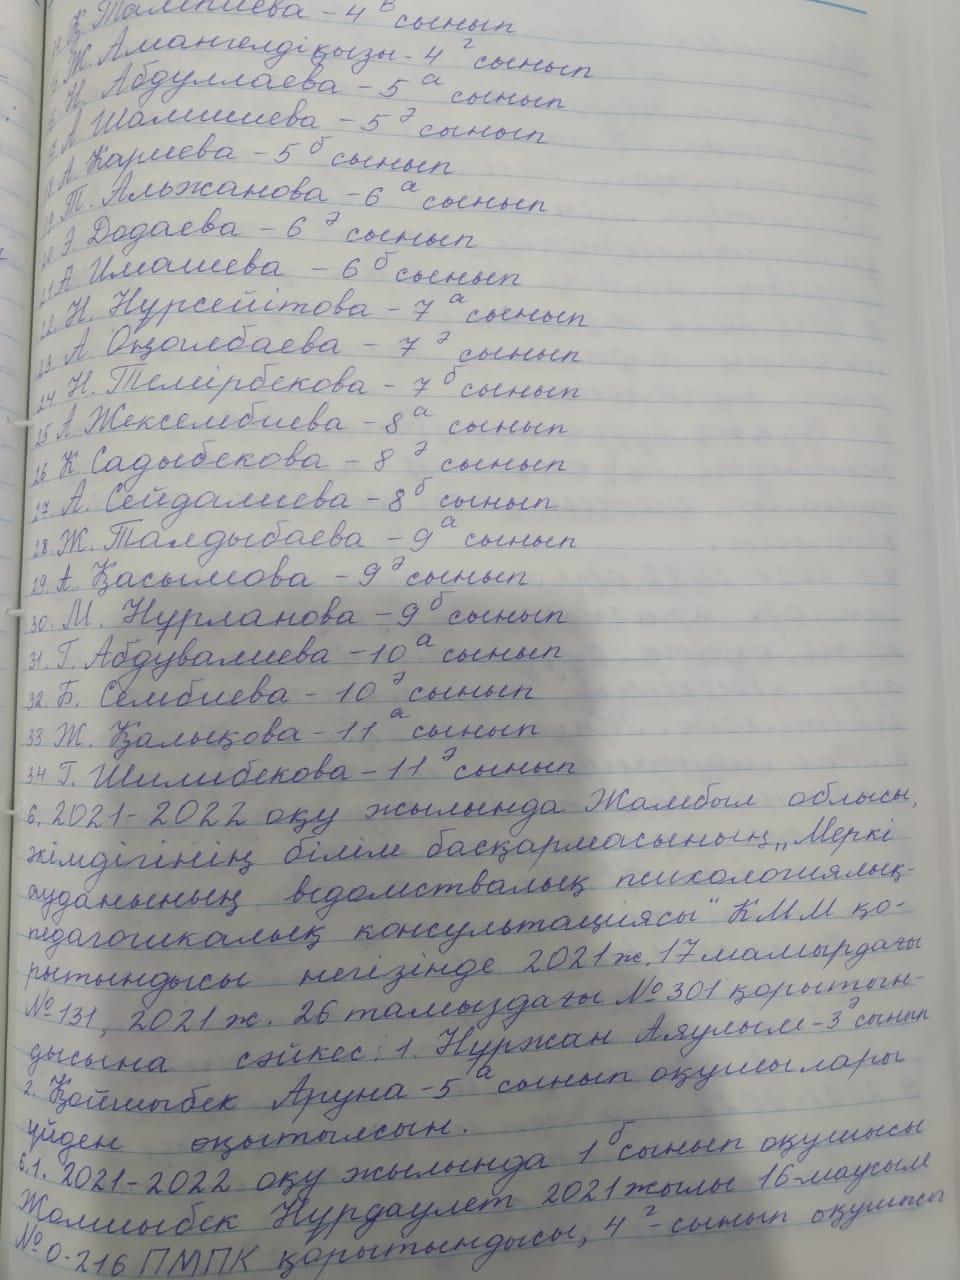 Қ. Талпиева - 4 в сынып
Ж. Амангелдіқызы - 4 г сынып
Н. Абдуллаева - 5 а сынып
А Шалишева - 5 ә сынып
А. Кариева - 5 б сынып
19. Т. Альжанова - 6 а сынып
20. Э. Додаева - 6 ә сынып
21. А Имашева - 6 б сынып
22. Н. Нұрсейітова - 7 а сынып
23. А Оқоилбаева - 7 ә сынып
24 Н. Темірбекова - 7 б сынып
25 А Жексембиева - 8 а сынып
26 К. Садыбекова - 8 ә сынып
27 А. Сейдалиева - 8 б сынып
28. Ж. Талдыбаева - 9 а сынып
29. А. Қасымова - 9 ә сынып
30. М. Нұрланова - 9 б сынып
31. Г. Абдувалиева - 10 а сынып
32. Б. Сембиева - 10 ә сынып
33 Ж. Қалықова - 11 а сынып
34 Г. Шилибекова - 11 ә сынып
6. 2021-2022 оқу жылында Жамбыл облысы,
әкімдігінің білім басқармасының „Меркі
ауданының ведомствалық психологиялық-
педагогикалық консультациясы" КММ қо-
рытындысы негізінде 2021 ж. 17 мамырдағы
№ 131, 2021 ж. 26 тамыздағы № 301 қорытын-
дысына сәйкес: 1. Нұржан Аяулым - 3 ә сынып
2. Қойшыбек Аруна - 5 а сынып оқушылары
үйден оқытылсын.
6.1. 2021-2022 оқу жылында 1 б сынып оқушысы
Жолшыбек Нұрдаулет 2021 жылы 16-маусым
№ 0-216 ПМПК қорытындысы, 4 г - сынып оқушысы